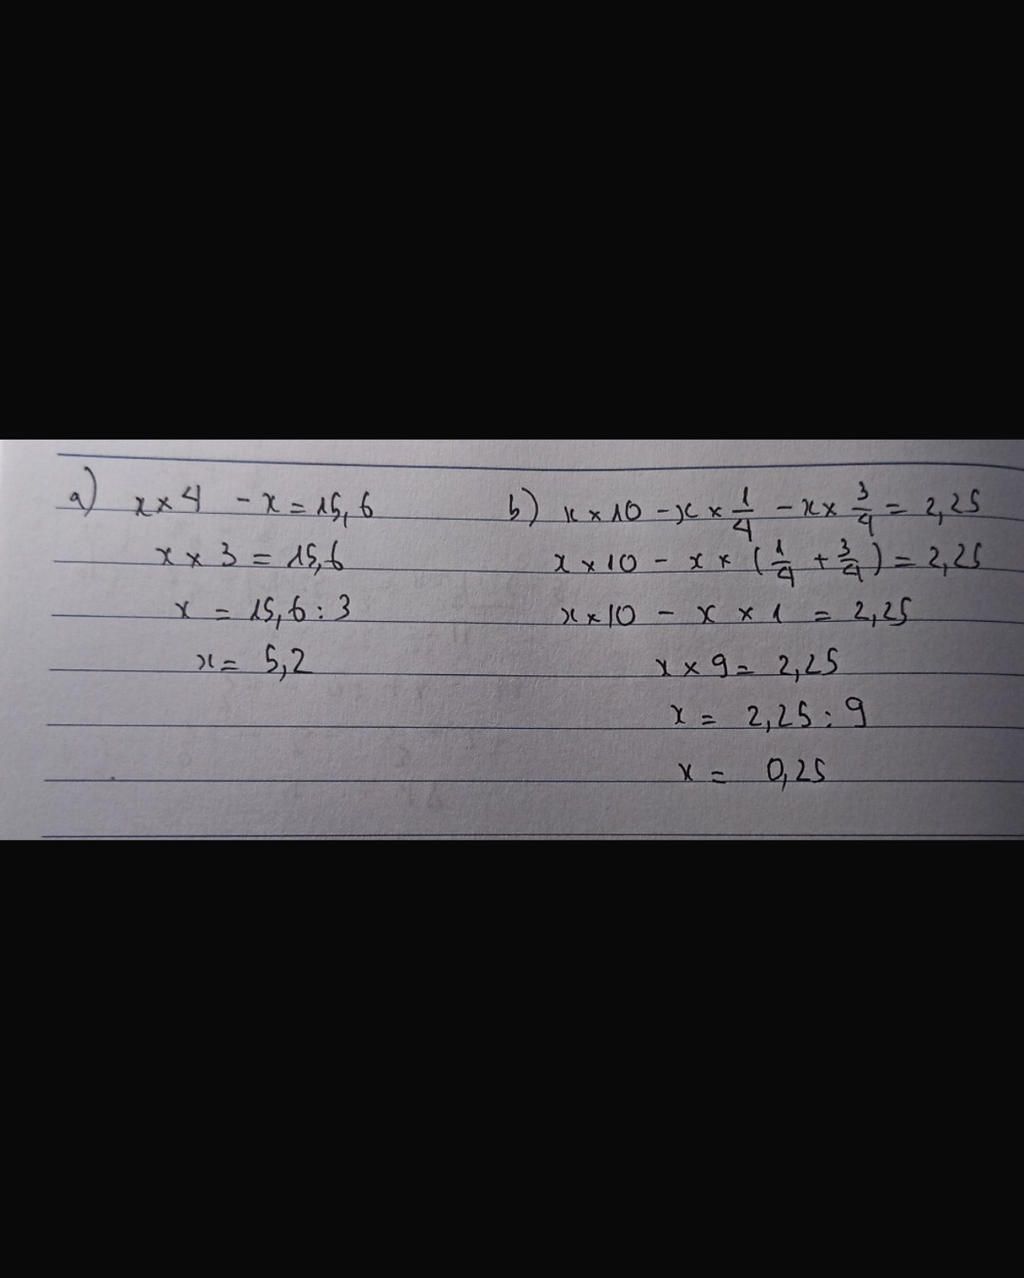 a) x × 4 - x = 15,6
x × 3 = 15,6
x = 15,6 : 3
x = 5,2
b) x × 10 - x × 1/4 - x × 3/4 = 2,25
x × 10 - x × (1/4 + 3/4) = 2,25
x × 10 - x × 1 = 2,25
x × 9 = 2,25
x = 2,25 : 9
x = 0,25